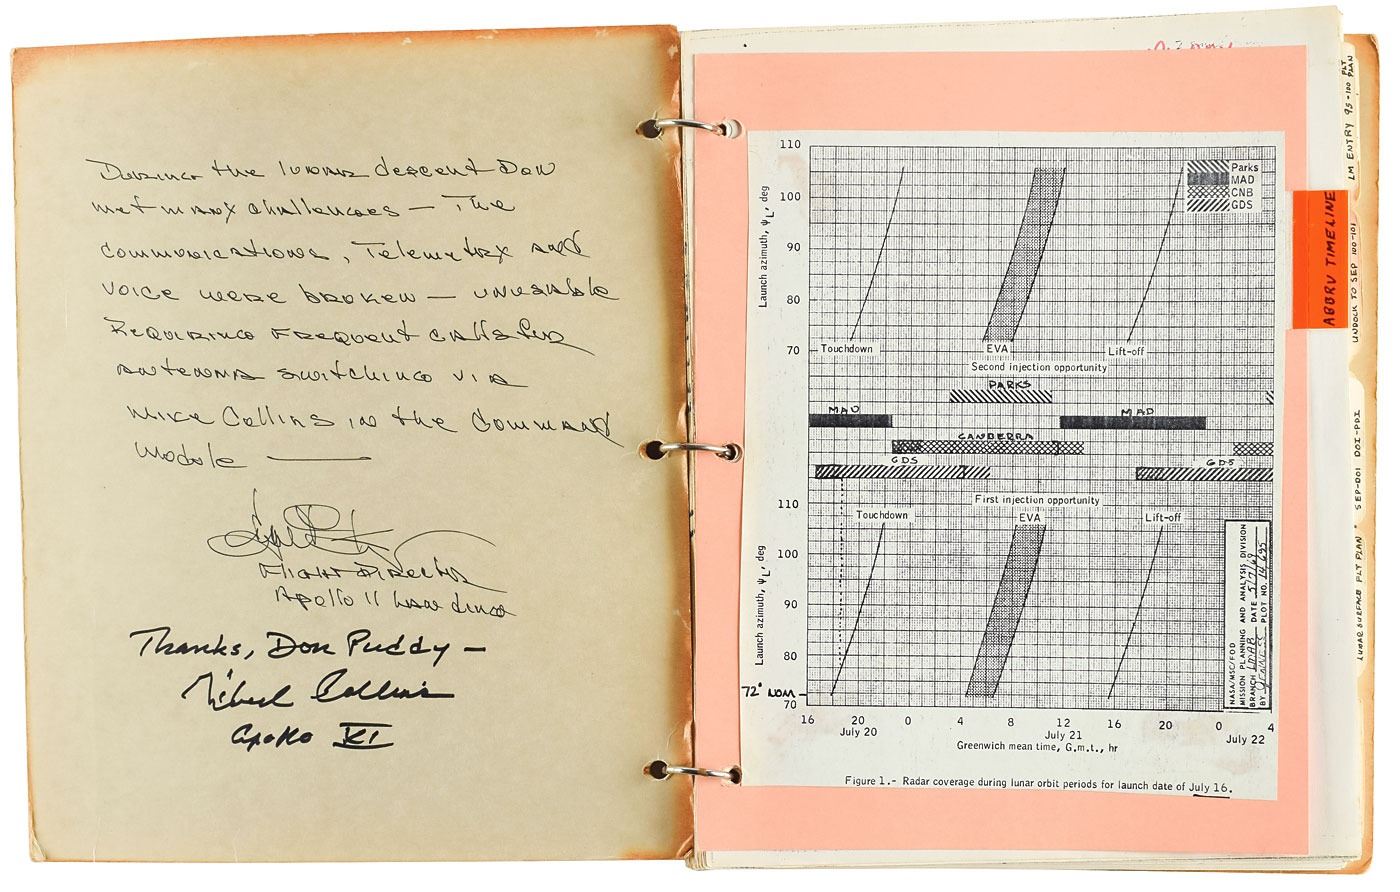 During the lunar descent Don
met many challenges — The
communications, Telemetry and
voice were broken — unusable
Requiring frequent calls for
antenna switching via
Mike Collins in the Command
Module —
Flight Director
Apollo 11 Landing
Thanks, Don Puddy —
Michael Collins
Apollo XI
110
100
90
80
70
Launch azimuth, ψL, deg
Parks
MAD
CNB
GDS
Touchdown
EVA
Lift-off
Second injection opportunity
PARKS
MAD
MAD
CANBERRA
GDS
GDS
First injection opportunity
110
100
90
80
72° NOM
70
Launch azimuth, ψL, deg
Touchdown
EVA
Lift-off
NASA/MSC/FOD
MISSION PLANNING AND ANALYSIS DIVISION
BRANCH LMAB DATE 5/7/69
BY PLOT NO. 14695
16 20 0 4 8 12 16 20 0 4
July 20 July 21 July 22
Greenwich mean time, G.m.t., hr
Figure 1.- Radar coverage during lunar orbit periods for launch date of July 16.
ABBRV TIMELINE
LM ENTRY 95-100 FLT PLAN
UNDOCK TO SEP 100-101
SEP-DOI DOI-PDI
LUNAR SURFACE FLT PLAN